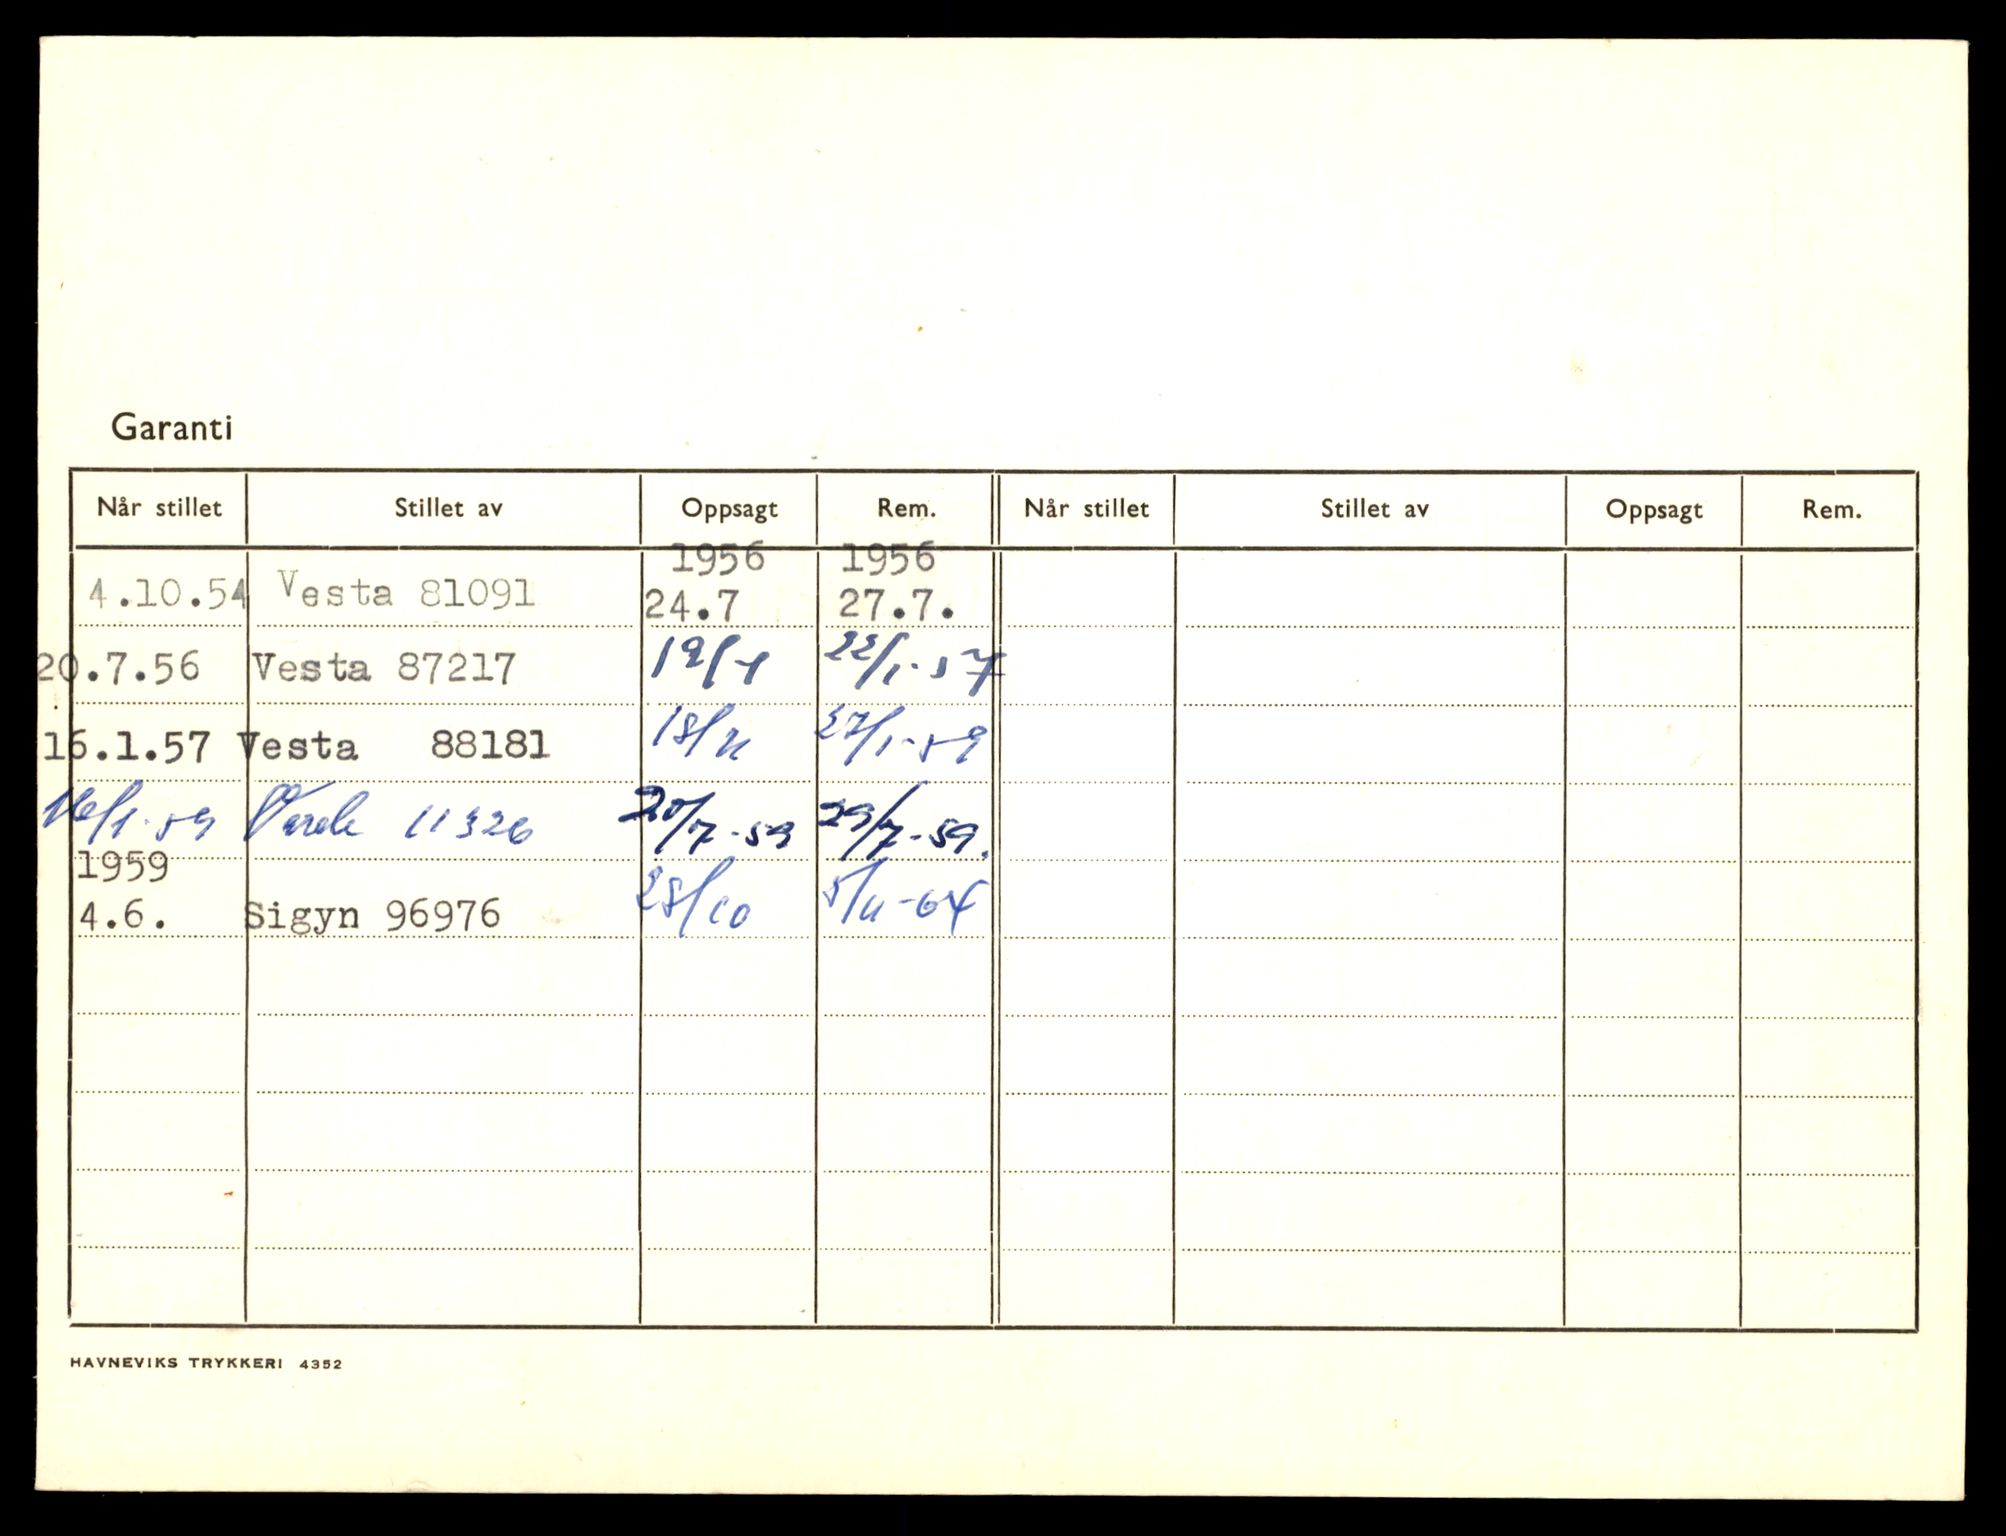 Garanti
Når stillet Stillet av Oppsagt Rem. Når stillet Stillet av Oppsagt Rem.
1956 1956
4.10.54 Vesta 81091 24.7 27.7.
20.7.56 Vesta 87217 19/1 22/1-57
16.1.57 Vesta 88181 27/1-59
16/1-59 11326 20/7-59 29/7-59.
1959
4.6. Sigyn 96976 28/10 5/11-64
HAVNEVIKS TRYKKERI 4352